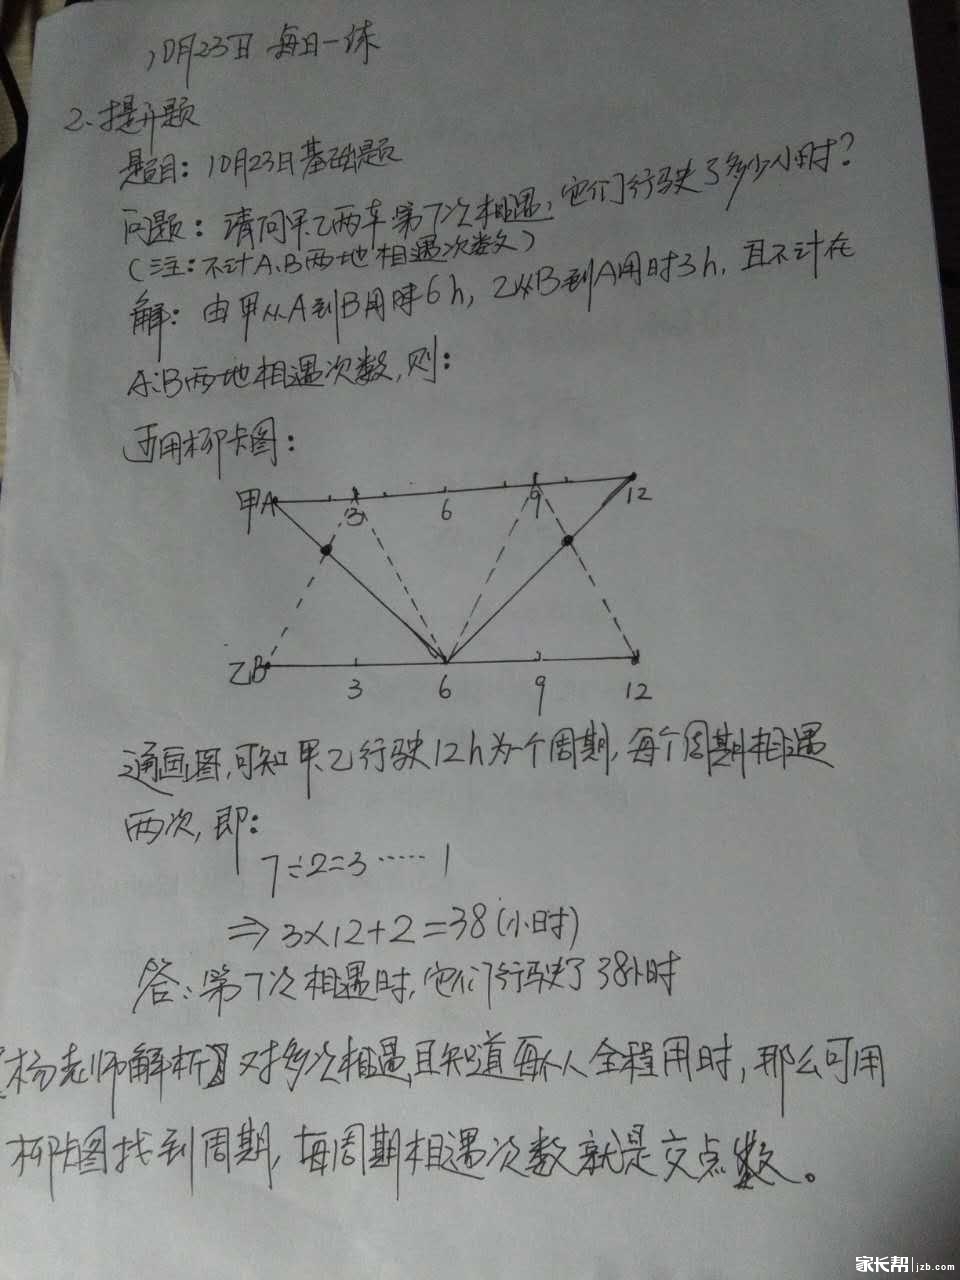 10月23日 每日一练
2、提升题
题目：10月23日基础题
问题：请问甲乙两车第7次相遇，它们行驶了多少小时？
(注：不计A、B两地相遇次数)
解：由甲从A到B用时6h，乙从B到A用时3h，且不计在
A、B两地相遇次数，则：
运用柳卡图：
甲A 3 6 9 12
乙B 3 6 9 12
通画图，可知甲、乙行驶12h为一个周期，每个周期相遇
两次，即：
7÷2=3……1
⇒3×12+2=38(小时)
答：第7次相遇时，它们行驶了38小时
【杨老师解析】对多次相遇且知道每个人全程用时，那么可用
柳卡图找到周期，每周期相遇次数就是交点数。
家长帮 jzb.com